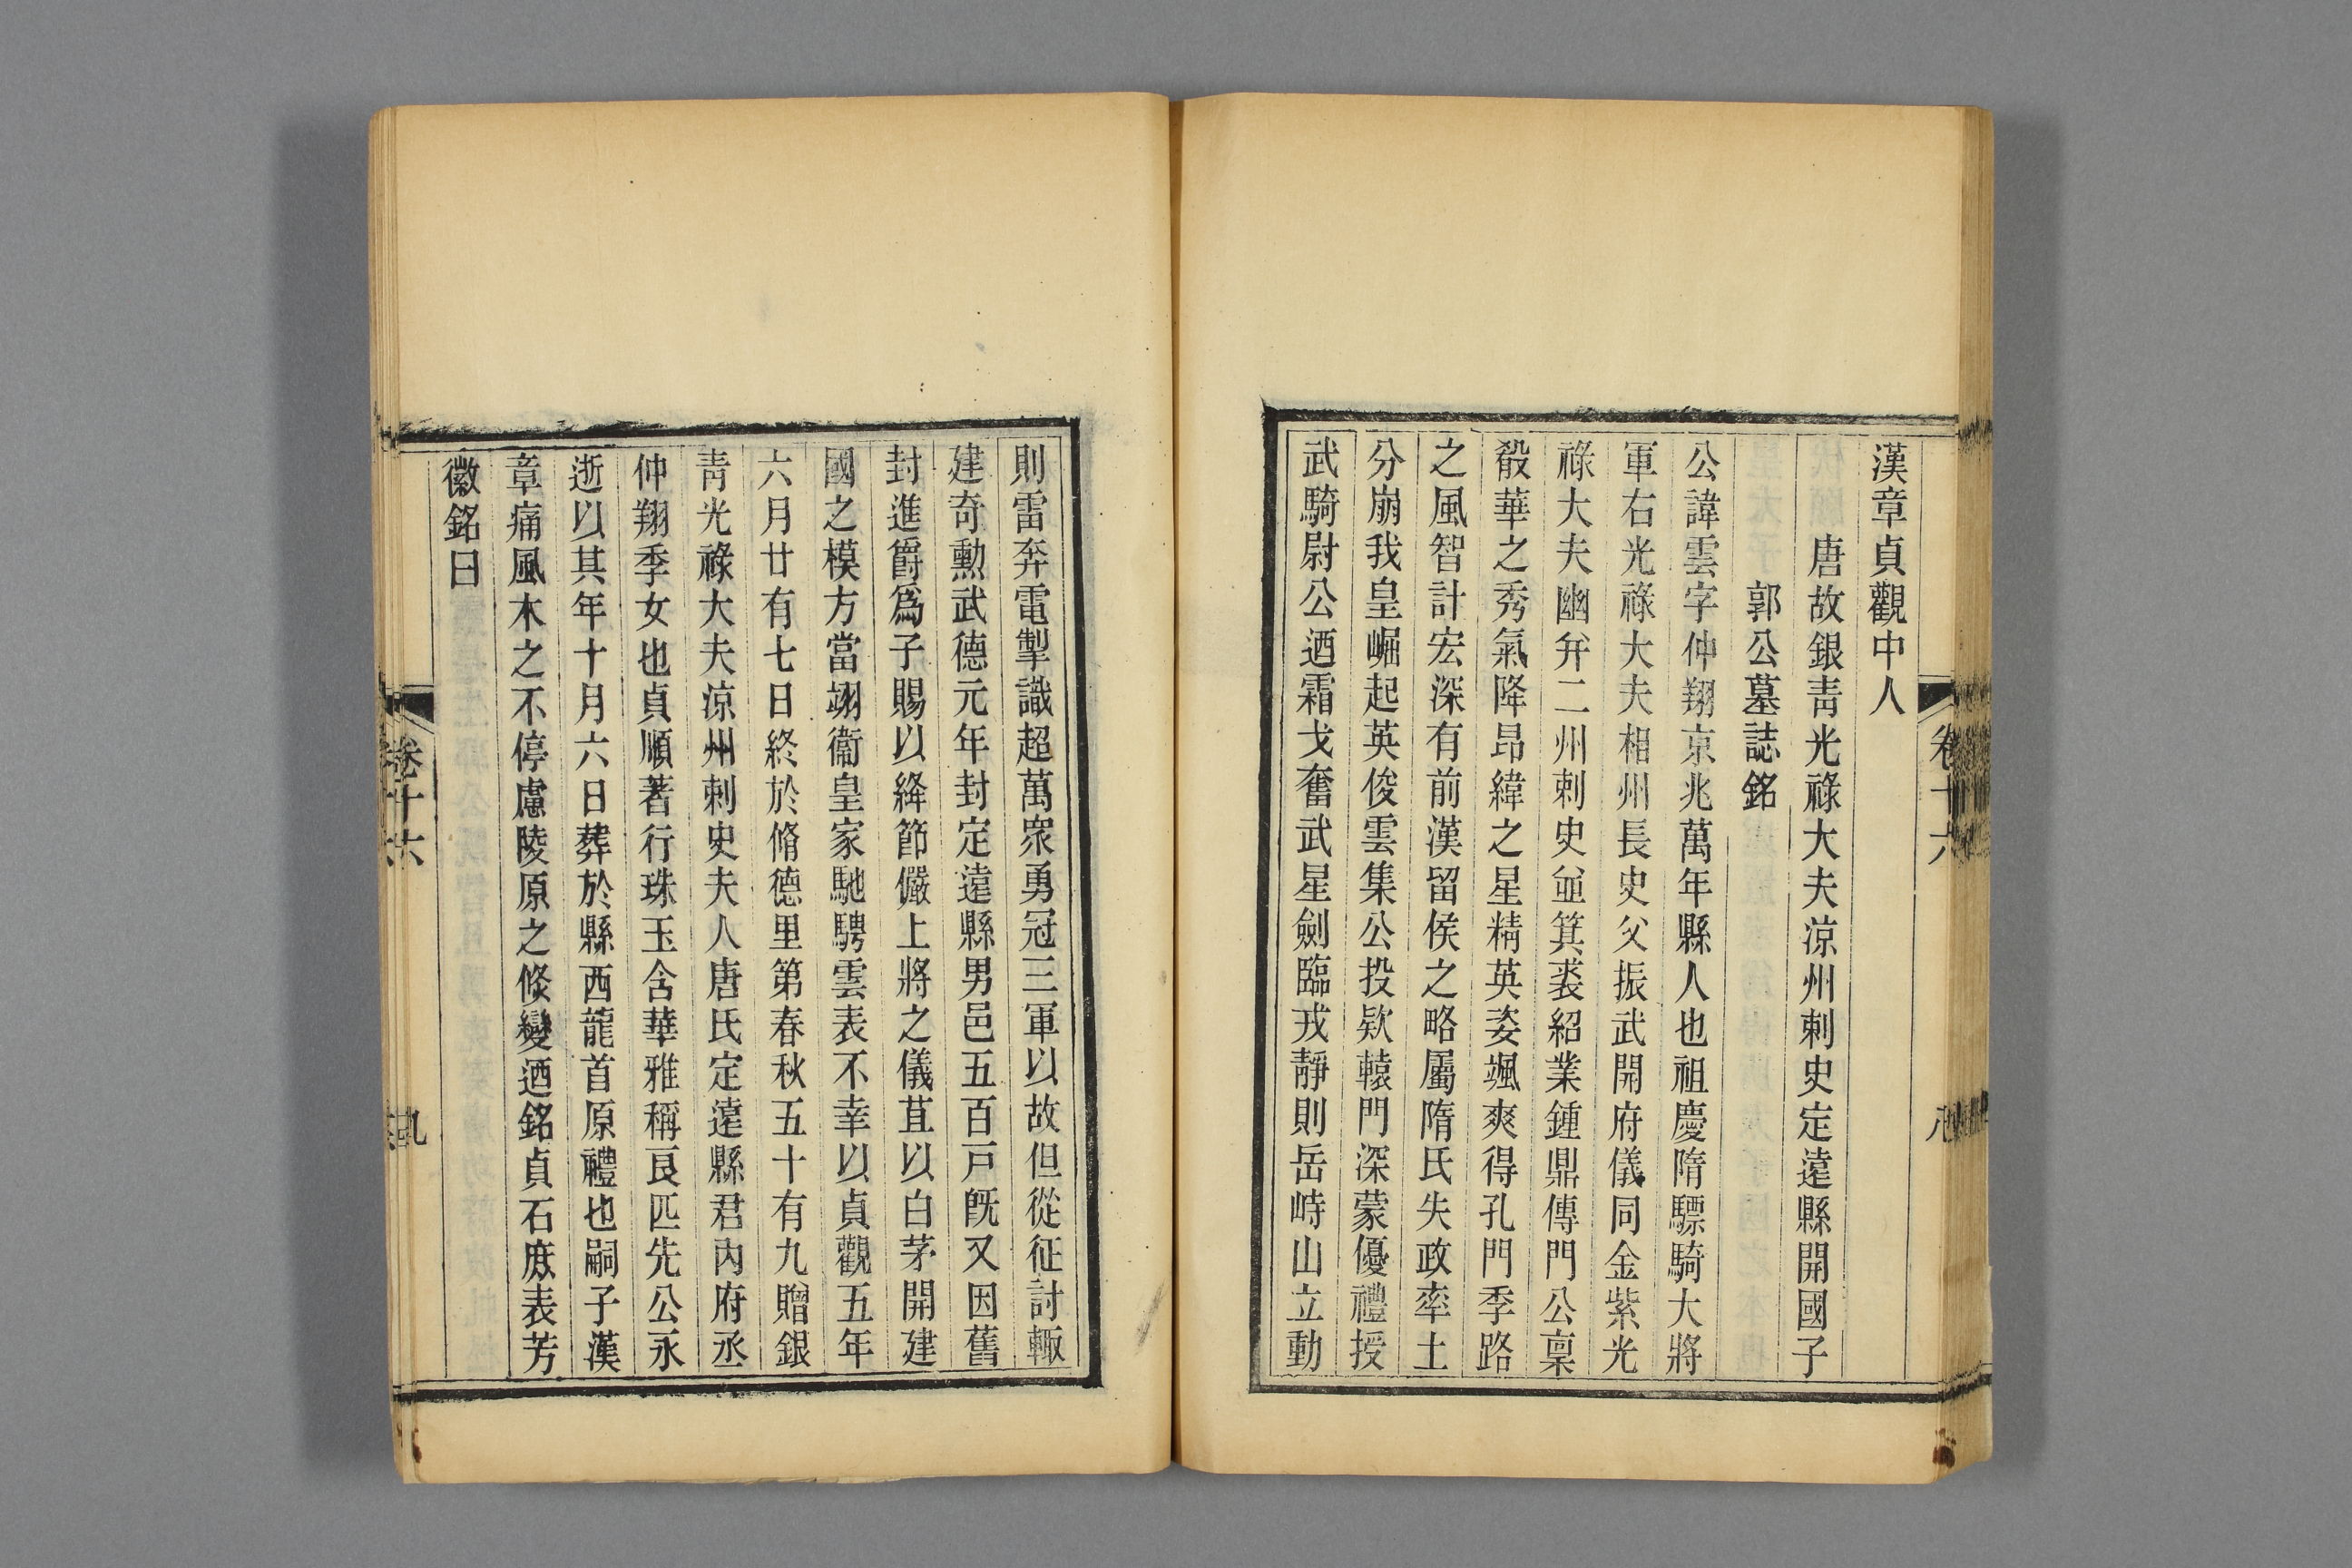 漢章貞觀中人
唐故銀靑光祿大夫涼州刺史定遠縣開國子
郭公墓誌銘
公諱雲字仲翔京兆萬年縣人也祖慶隋驃騎大將
軍右光祿大夫相州長史父振武開府儀同金紫光
祿大夫幽幷二州刺史並箕裘紹業鍾鼎傳門公稟
殽華之秀氣降昂緯之星精英姿颯爽得孔門季路
之風智計宏深有前漢留侯之略屬隋氏失政率土
分崩我皇崛起英俊雲集公投欵轅門深蒙優禮授
武騎尉公迺霜戈奮武星劍臨戎靜則岳峙山立動
則雷奔電掣識超萬衆勇冠三軍以故但從征討輙
建奇勳武德元年封定遠縣男邑五百戸旣又因舊
封進爵爲子賜以絳節儼上將之儀苴以白茅開建
國之模方當翊衞皇家馳騁雲表不幸以貞觀五年
六月廿有七日終於脩德里第春秋五十有九贈銀
靑光祿大夫涼州刺史夫人唐氏定遠縣君內府丞
仲翔季女也貞順著行珠玉含華雅稱良匹先公永
逝以其年十月六日葬於縣西龍首原禮也嗣子漢
章痛風木之不停慮陵原之倐變迺銘貞石庶表芳
徽銘曰
卷十六